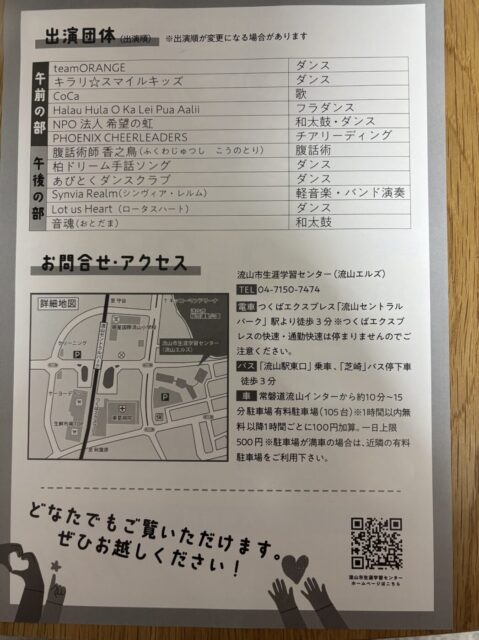 出演団体（出演順） ※出演順が変更になる場合があります
午前の部
teamORANGE ダンス
キラリ☆スマイルキッズ ダンス
CoCa 歌
Halau Hula O Ka Lei Pua Aalii フラダンス
NPO 法人 希望の虹 和太鼓・ダンス
PHOENIX CHEERLEADERS チアリーディング
午後の部
腹話術師 香之鳥（ふくわじゅつし こうのとり） 腹話術
柏ドリーム手話ソング ダンス
あびとくダンスクラブ ダンス
Synvia Realm（シンヴィア・レルム） 軽音楽・バンド演奏
Lot us Heart（ロータスハート） ダンス
音魂（おとだま） 和太鼓
お問合せ・アクセス
詳細地図
至 守谷
クリーニング
流山市生涯学習センター
（流山エルズ）
ケーヨーデイツー
生鮮市場TOP
東葛病院
至 秋葉原
流山市生涯学習センター（流山エルズ）
TEL 04-7150-7474
電車 つくばエクスプレス「流山セントラル
パーク」駅より徒歩３分 ※つくばエクスプ
レスの快速・通勤快速は停まりませんのでご
注意ください。
バス 「流山駅東口」乗車、「芝崎」バス停下車
徒歩３分
車 常磐道流山インターから約10分～15
分 駐車場 有料駐車場（105台）※1時間以内無
料 以降1時間ごとに100円加算。一日上限
500円 ※駐車場が満車の場合は、近隣の有料
駐車場をご利用下さい。
どなたでもご覧いただけます。
ぜひお越しください！
流山市生涯学習センター
ホームページはこちら